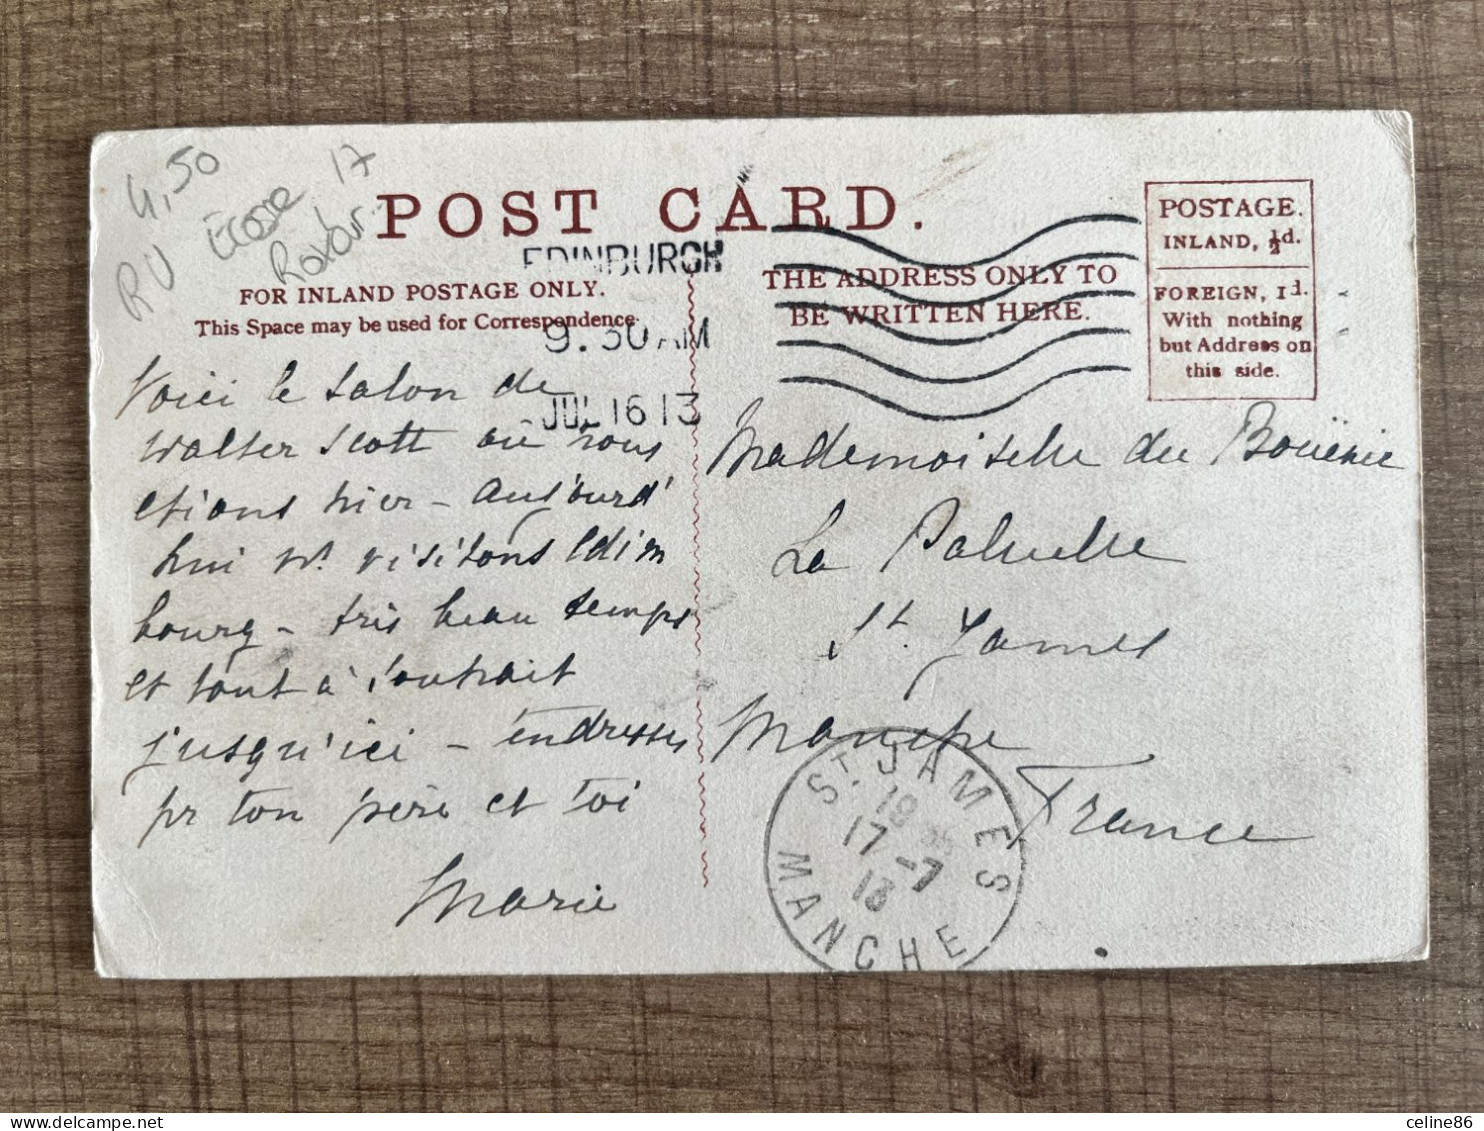 4,50
RU Ecosse 17
POST CARD.
EDINBURGH
9.30AM
JUL 16 13
FOR INLAND POSTAGE ONLY.
This Space may be used for Correspondence.
THE ADDRESS ONLY TO
BE WRITTEN HERE.
POSTAGE.
INLAND, ½d.
FOREIGN, 1d.
With nothing
but Address on
this side.
Voici le salon de
Walter Scott où nous
étions hier - Aujourd'
hui ns. visitons Edim
bourg - très beau temps
et tout à souhait
jusqu'ici - tendresses
pr ton père et toi
Marie
Mademoiselle du
La Paluelle
St. James
Manche
France
ST. JAMES
17-7
13
MANCHE
celine86